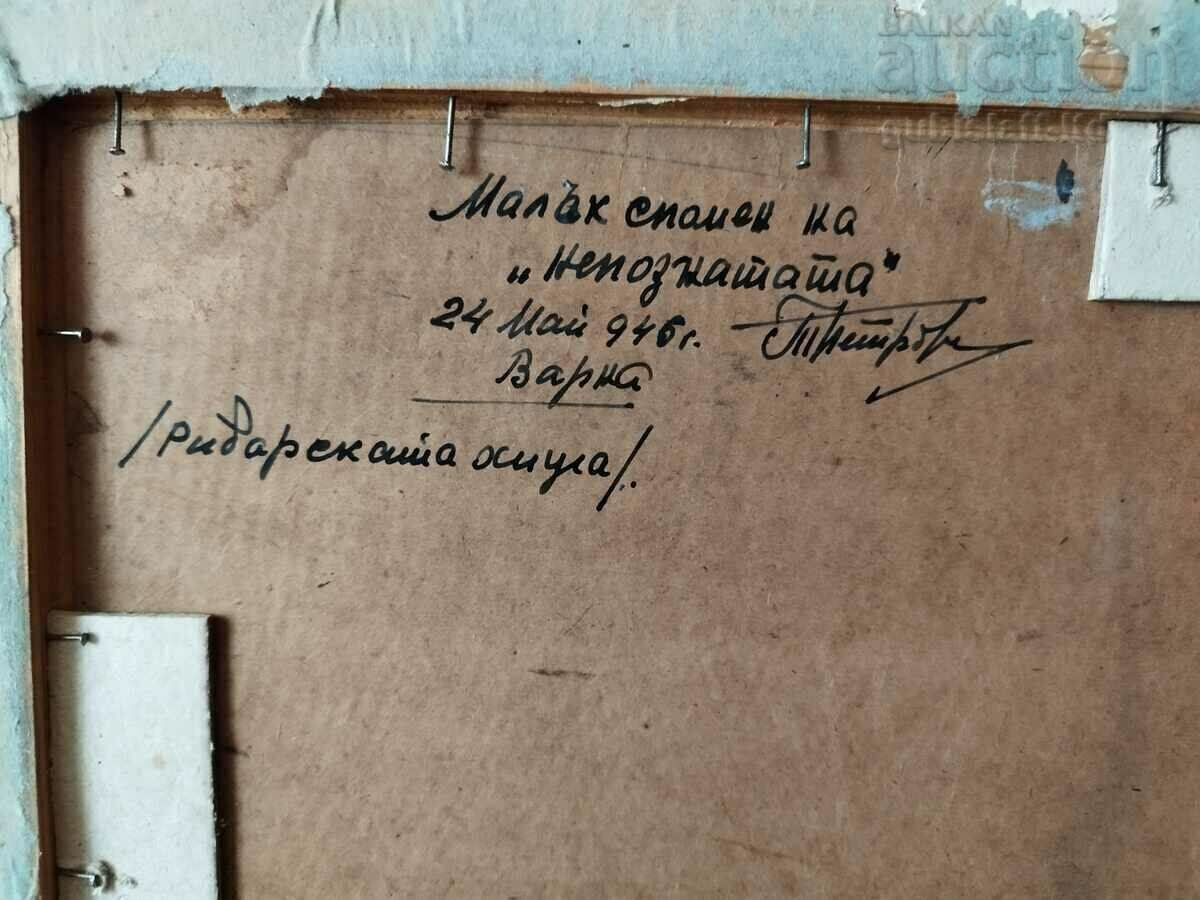 BALKAN
auction
Малък спомен на
„Непознатата"
24 Май 946 г.
Варна
/Рибарската хижа/.